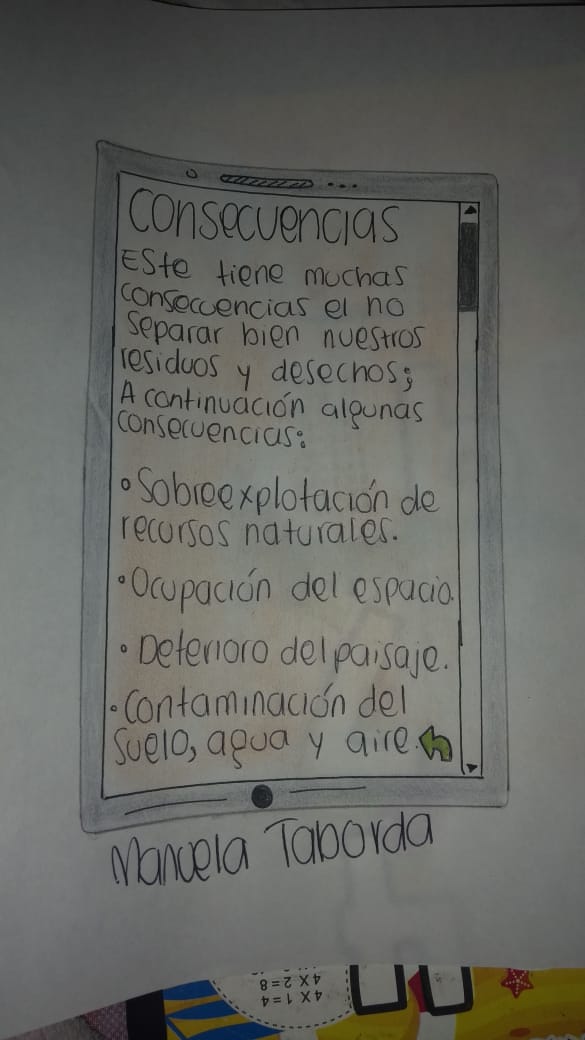 Consecuencias
Este tiene muchas
consecuencias el no
separar bien nuestros
residuos y desechos;
A continuación algunas
consecuencias:
• Sobreexplotación de
recursos naturales.
• Ocupación del espacio.
• Deterioro del paisaje.
• Contaminación del
suelo, agua y aire.
Manuela Taborda
4 X 2 = 8
4 X 1 = 4